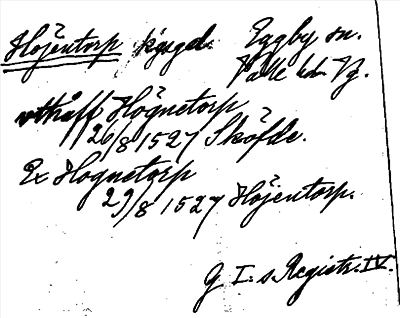 Höjentorp kgsgd. Eggby sn.
Valle hd. Vg.
uthåff Högnetorp
26/8 1527 Sköfde.
Ex Hognetorp
29/8 1527 Höjentorp.
G. I:s Registr. IV.